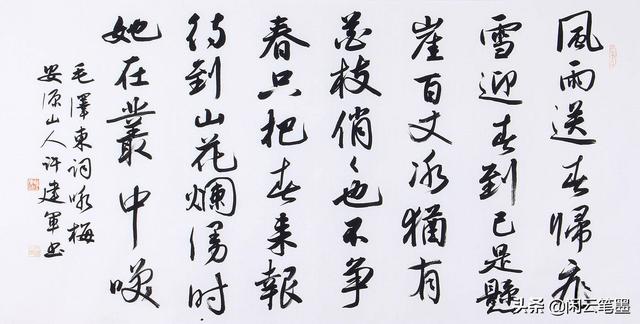 風雨送春歸飛
雪迎春到已是懸
崖百丈冰猶有
花枝俏々也不争
春只把春来報
待到山花爛漫时
她在叢中咲
毛澤東词咏梅
安源山人许建軍书
头条 @闲云笔墨